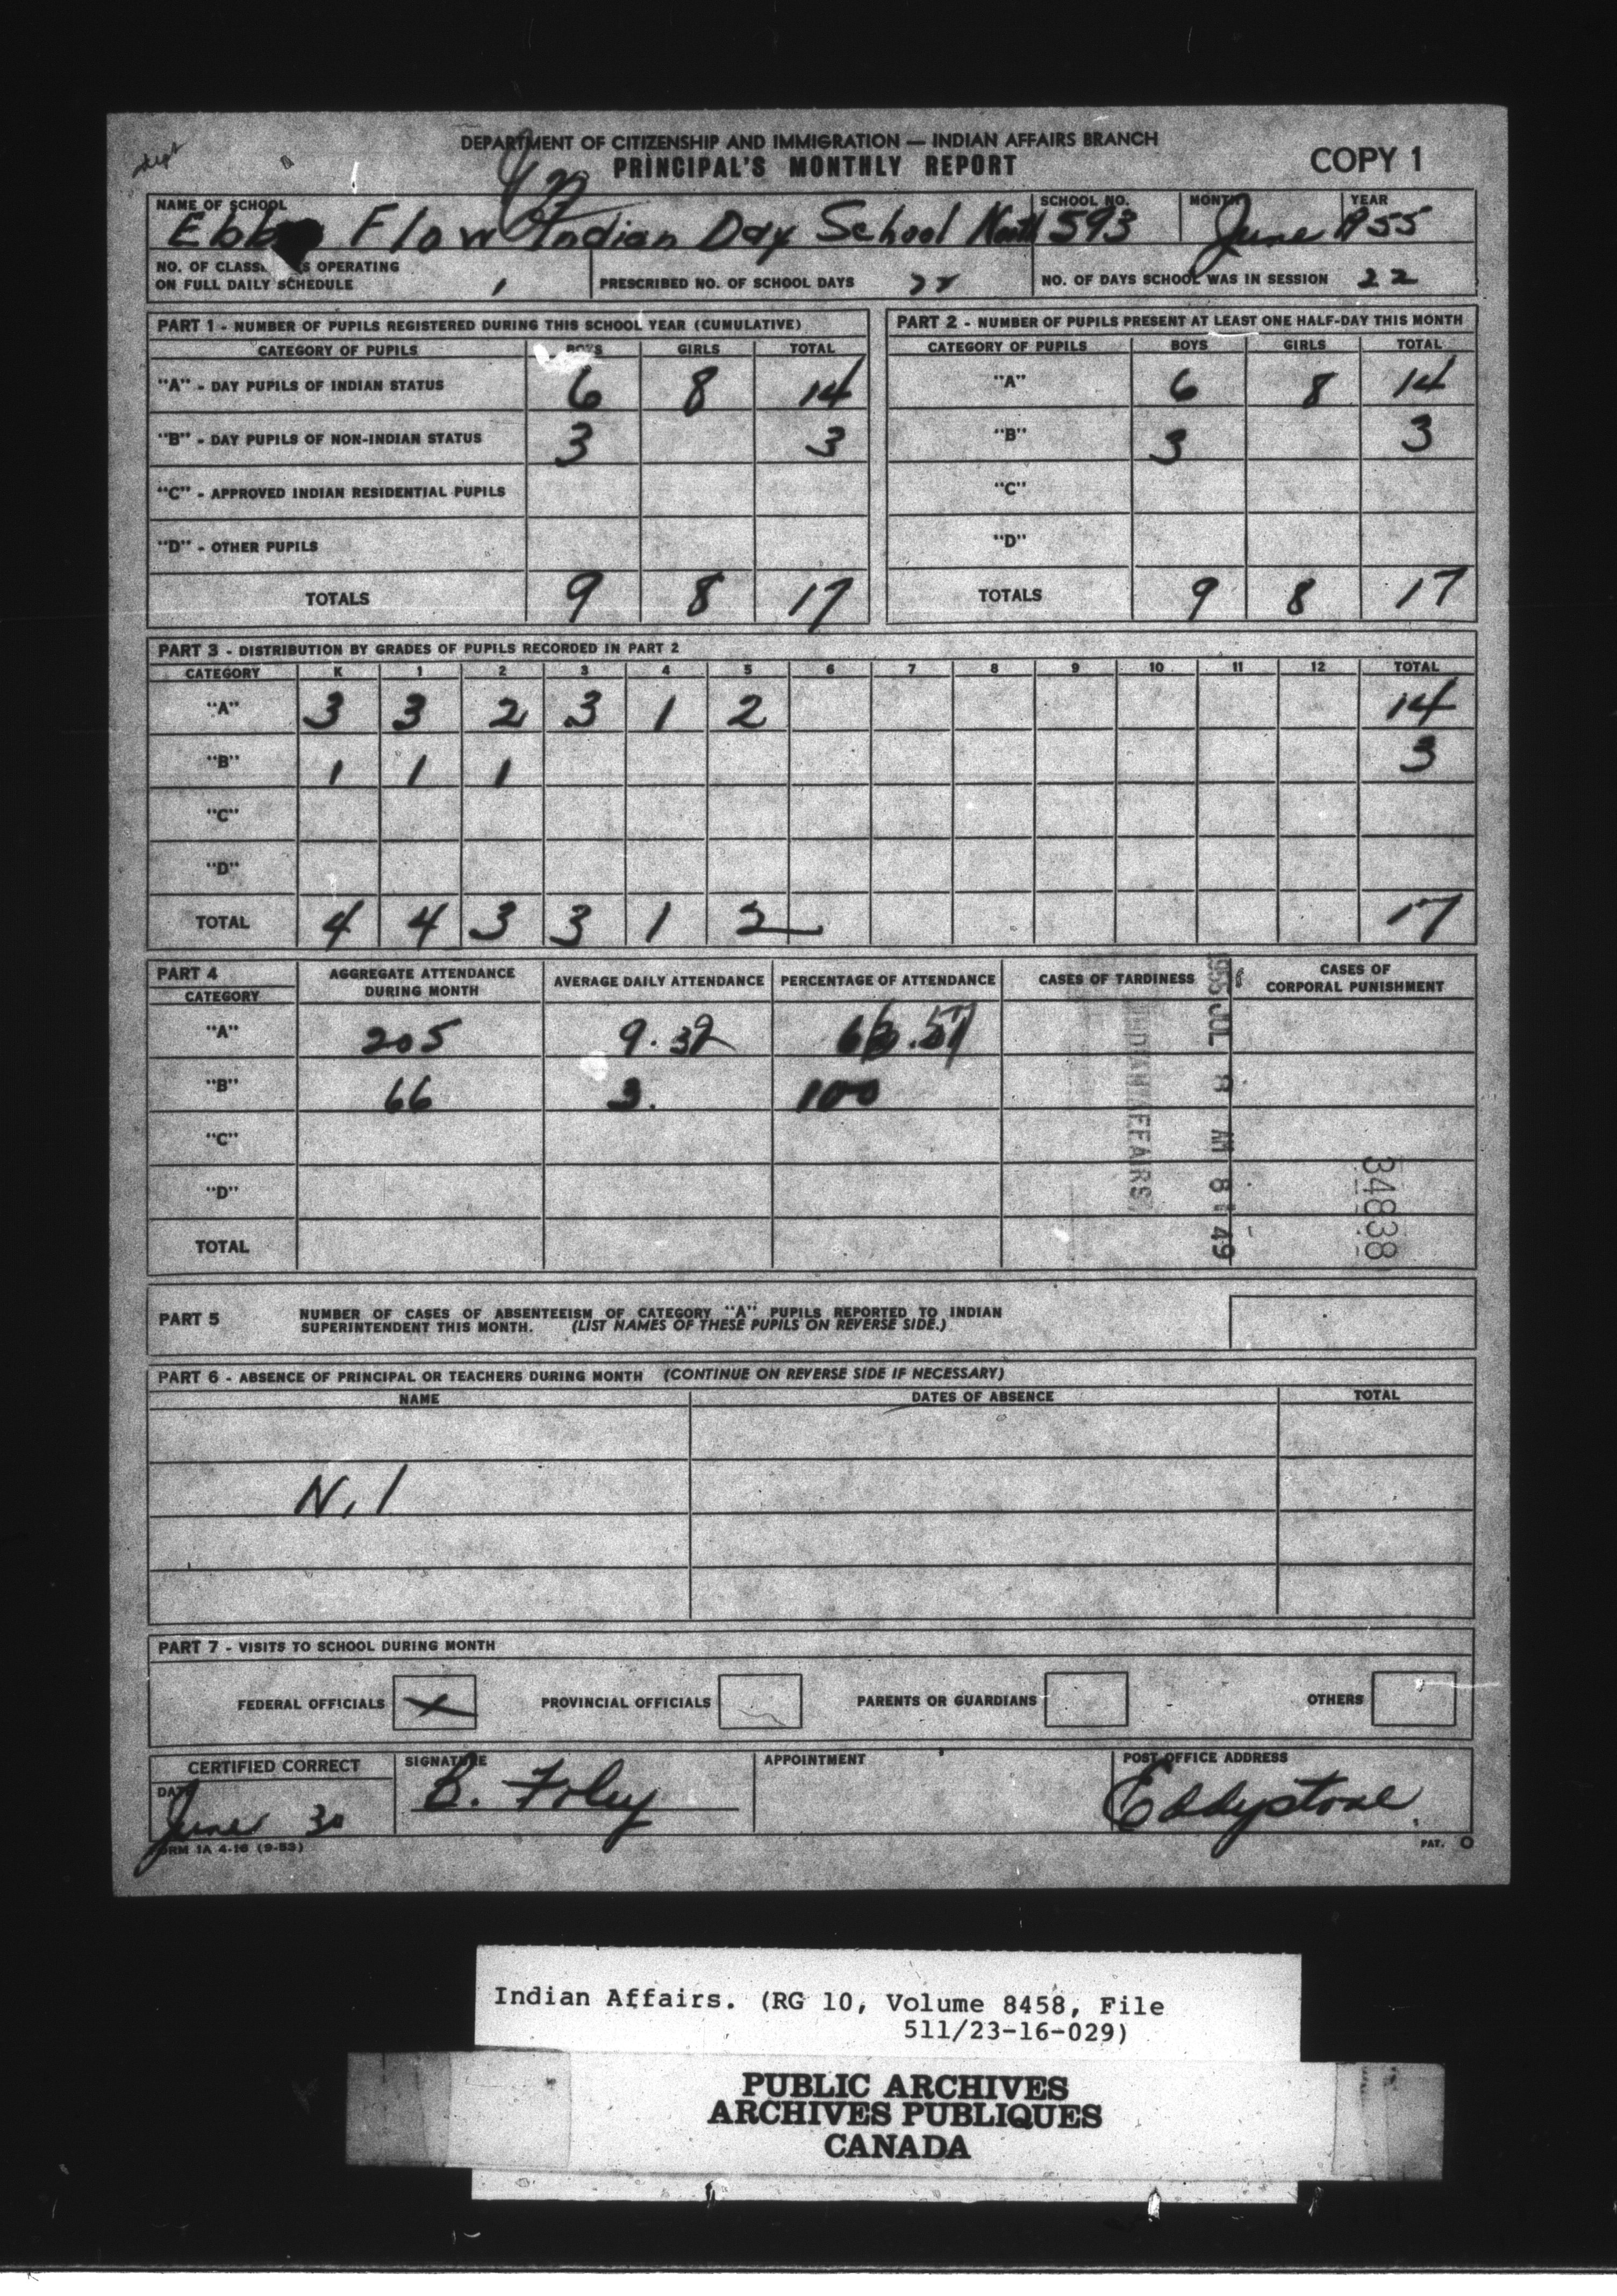 DEPARTMENT OF CITIZENSHIP AND IMMIGRATION — INDIAN AFFAIRS BRANCH
PRINCIPAL'S MONTHLY REPORT
COPY 1
NAME OF SCHOOL SCHOOL NO. MONTH YEAR
Ebb Flow Indian Day School North 593 June 1955
NO. OF CLASS OPERATING
ON FULL DAILY SCHEDULE 1 PRESCRIBED NO. OF SCHOOL DAYS 22 NO. OF DAYS SCHOOL WAS IN SESSION 22
PART 1 - NUMBER OF PUPILS REGISTERED DURING THIS SCHOOL YEAR (CUMULATIVE)
CATEGORY OF PUPILS BOYS GIRLS TOTAL
"A" - DAY PUPILS OF INDIAN STATUS 6 8 14
"B" - DAY PUPILS OF NON-INDIAN STATUS 3 3
"C" - APPROVED INDIAN RESIDENTIAL PUPILS
"D" - OTHER PUPILS
TOTALS 9 8 17
PART 2 - NUMBER OF PUPILS PRESENT AT LEAST ONE HALF-DAY THIS MONTH
CATEGORY OF PUPILS BOYS GIRLS TOTAL
"A" 6 8 14
"B" 3 3
"C"
"D"
TOTALS 9 8 17
PART 3 - DISTRIBUTION BY GRADES OF PUPILS RECORDED IN PART 2
CATEGORY K 1 2 3 4 5 6 7 8 9 10 11 12 TOTAL
"A" 3 3 2 3 1 2 14
"B" 1 1 1 3
"C"
"D"
TOTAL 4 4 3 3 1 2 17
PART 4
CATEGORY
AGGREGATE ATTENDANCE
DURING MONTH
AVERAGE DAILY ATTENDANCE PERCENTAGE OF ATTENDANCE CASES OF TARDINESS
CASES OF
CORPORAL PUNISHMENT
"A" 205 9.32
"B" 66 3. 100
"C"
"D"
TOTAL
INDIAN AFFAIRS
1955 JUL 8 AM 8 49
34838
PART 5 NUMBER OF CASES OF ABSENTEEISM OF CATEGORY "A" PUPILS REPORTED TO INDIAN
SUPERINTENDENT THIS MONTH. (LIST NAMES OF THESE PUPILS ON REVERSE SIDE.)
PART 6 - ABSENCE OF PRINCIPAL OR TEACHERS DURING MONTH (CONTINUE ON REVERSE SIDE IF NECESSARY)
NAME DATES OF ABSENCE TOTAL
Nil
PART 7 - VISITS TO SCHOOL DURING MONTH
FEDERAL OFFICIALS X PROVINCIAL OFFICIALS PARENTS OR GUARDIANS OTHERS
CERTIFIED CORRECT SIGNATURE APPOINTMENT POST OFFICE ADDRESS
DATE
June 30 B. Foley Eddystone
FORM 1A 4-16 (9-53) PAT. O
Indian Affairs. (RG 10, Volume 8458, File
511/23-16-029)
PUBLIC ARCHIVES
ARCHIVES PUBLIQUES
CANADA